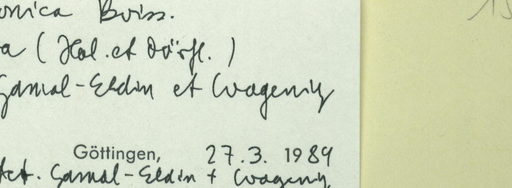 onica Boiss.
a (Hal. et Dörfl.)
Gamal-Eldin et Wagenitz
Göttingen, 27.3. 1989
det. Gamal-Eldin + Wagenitz